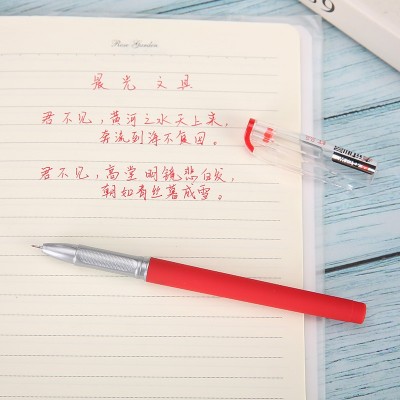 Rose Garden
晨光文具
君不见,黄河之水天上来,
奔流到海不复回。
君不见,高堂明镜悲白发,
朝如青丝暮成雪。